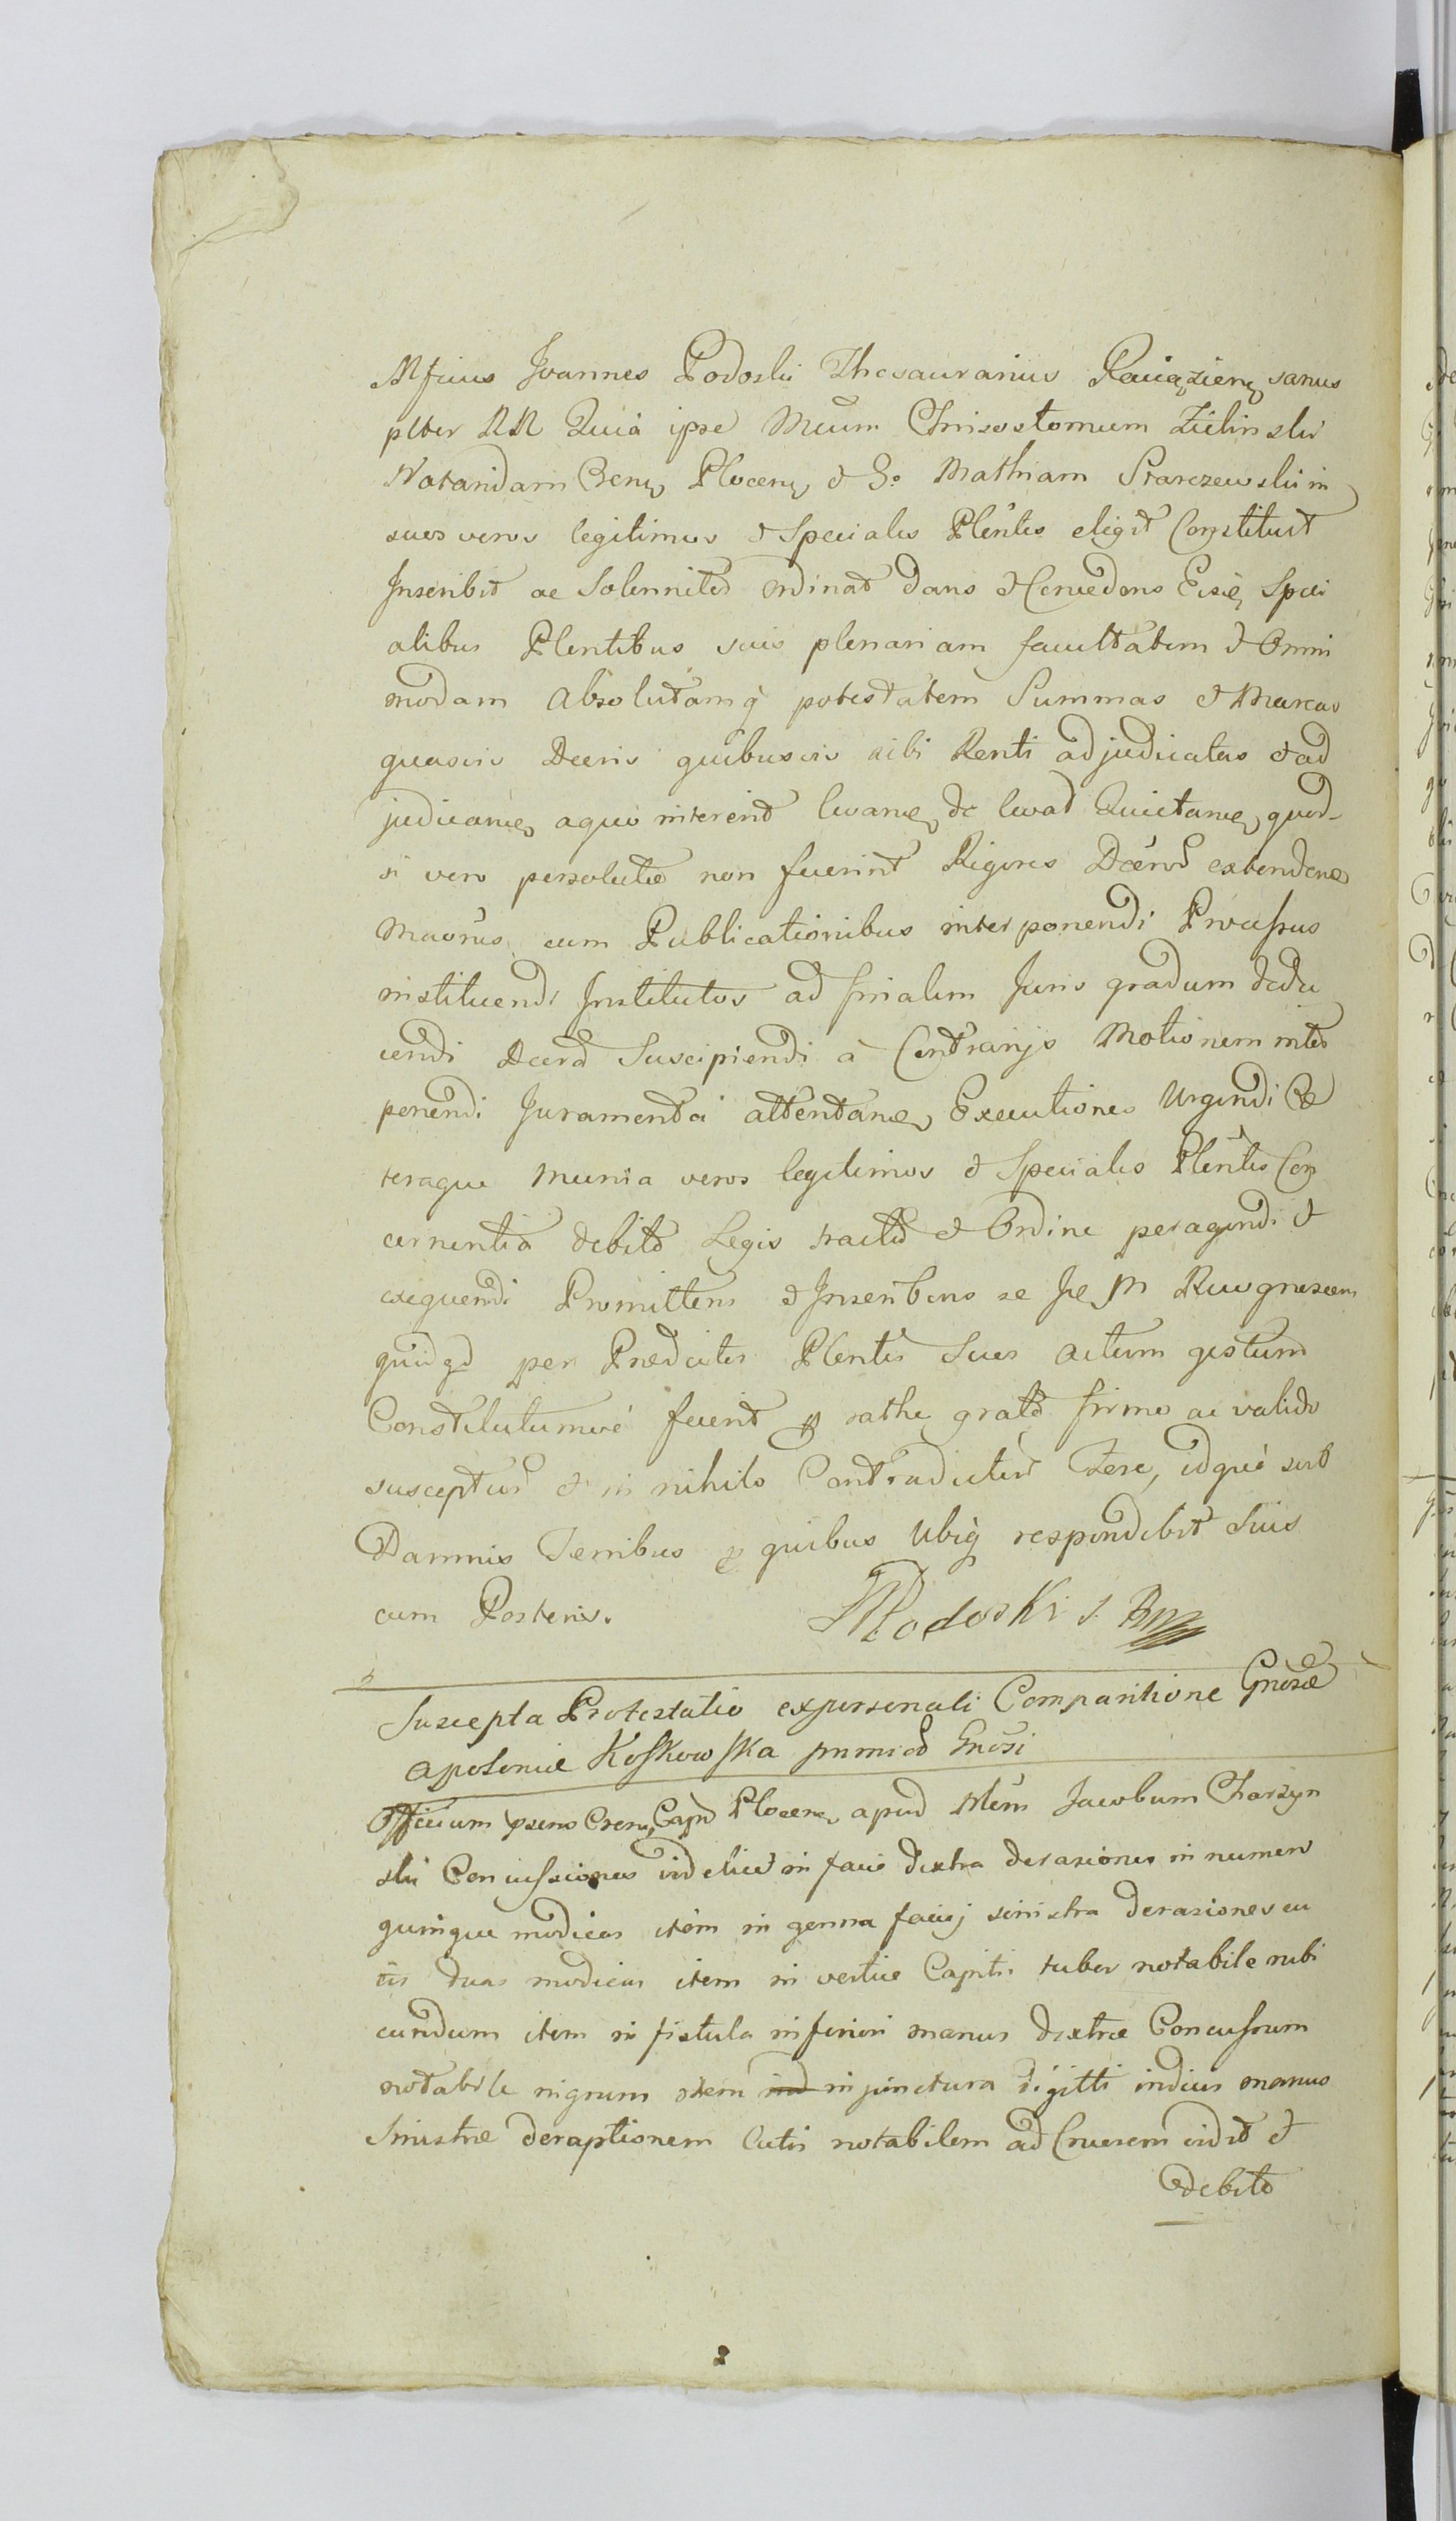 Mficus Joannes Podoski Thesaurarius Raciązień sanus
plter RR Quia ipse Mcum Chrisostomum Zielinski
Notarium Cren Plocen & Go Mathiam Starczewski in
suos veros legitimos & Speciales Plentes eligit Constituit
Inscribit ac Solenniter ordinat dans & Concedens Eisde Speci
alibus Plentibus suis plenariam facultatem & Omni
modam absolutamq potestatem Summas & Marcas
quasvis Decris quibusvis sibi Rcnti adjudicatas & ad
judicand a quo intererit levand de levat Quietand quod-
si vero persolutæ non fuerint Rigores Decror extendend
Maoris cum Publicationibus interponendi Processus
instituendi Institutos ad finalem Juris gradum dedu
cendi Decra Suscipiendi à Contrarijs Motionem inter
ponendi Juramenta attentand Executiones Urgendi Cæ
teraque munia veros legitimos & Speciales Plentes Con
cernentia debito Legis tractu & Ordine peragendi &
exequendi Promittens & Inscribens se Ipe M Recognoscens
quidqd per Prædictos Plentes Suos actum gestum
Constitutumve fuerit p ratho grato firmo ac valido
suscepturo & in nihilo Contradictur fere, idque sub
Damnis Terribus p quibus Ubiq respondebit Suis
cum Posteris. JPodoski s. R
Suscepta Protestatio ex personali Comparitione Gnosæ
Apoloniæ Koskowska primiod Gnosi
Officium psens Cren Capr Plocen apud Mem Jacobum Charzyn
ski Concussiones videlicet in facie dextra derasiones in numero
quinque modicas item in genna faciej sinistra derasiones cu
tis duas modicas item in vertice Capitis tuber notabile rubi
cundum item in fistula inferiori manus dextræ Concussum
notabile nigrum item in junctura digitti indicis manus
Sinistræ deraptionem Cutis notabilem ad Cruorem vidit &
debito